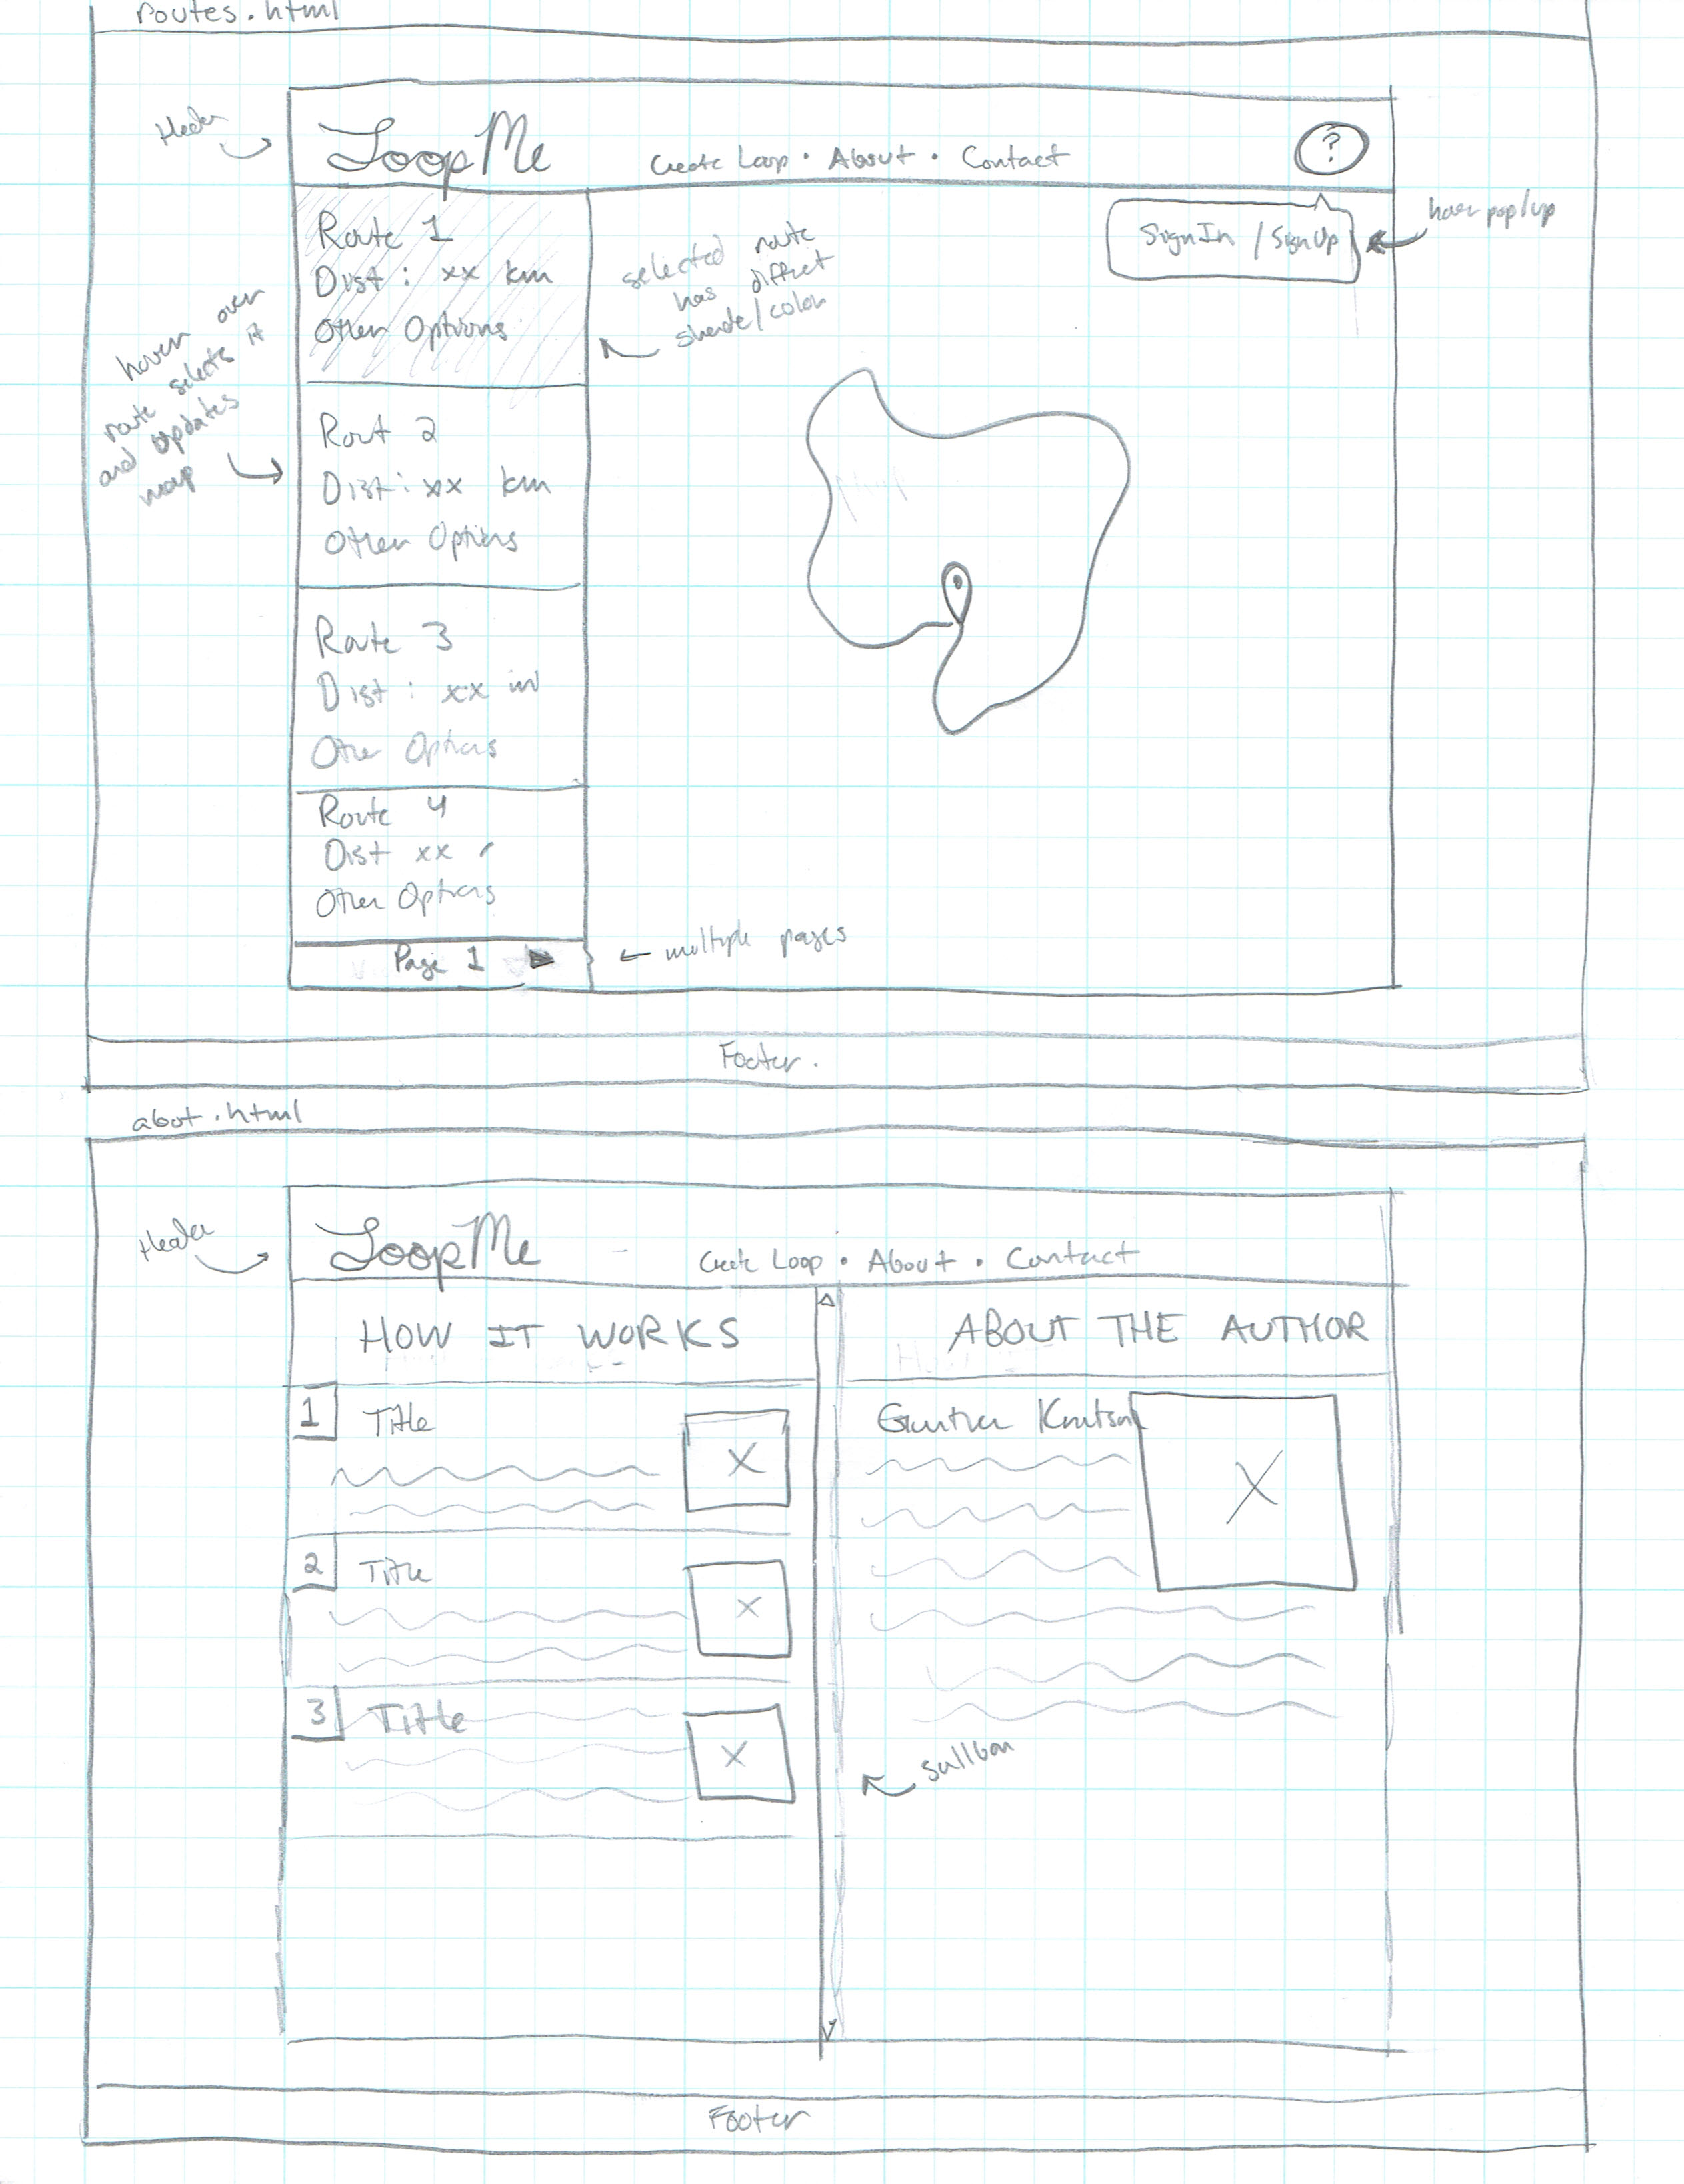 routes.html
Header
LoopMe
Create Loop • About • Contact
?
Sign In / Sign Up
hover pop/up
Route 1
Dist : xx km
Other Options
selected route
has diffret
shade/color
hover over
route selects it
and updates
map
Rout 2
Dist : xx km
Other Options
Route 3
Dist : xx
Other Options
Route 4
Dist xx
Other Options
Page 1
← multiple pages
Footer.
about.html
Header
LoopMe
Create Loop • About • Contact
HOW IT WORKS
ABOUT THE AUTHOR
1 Title
2 Title
3 Title
Footer